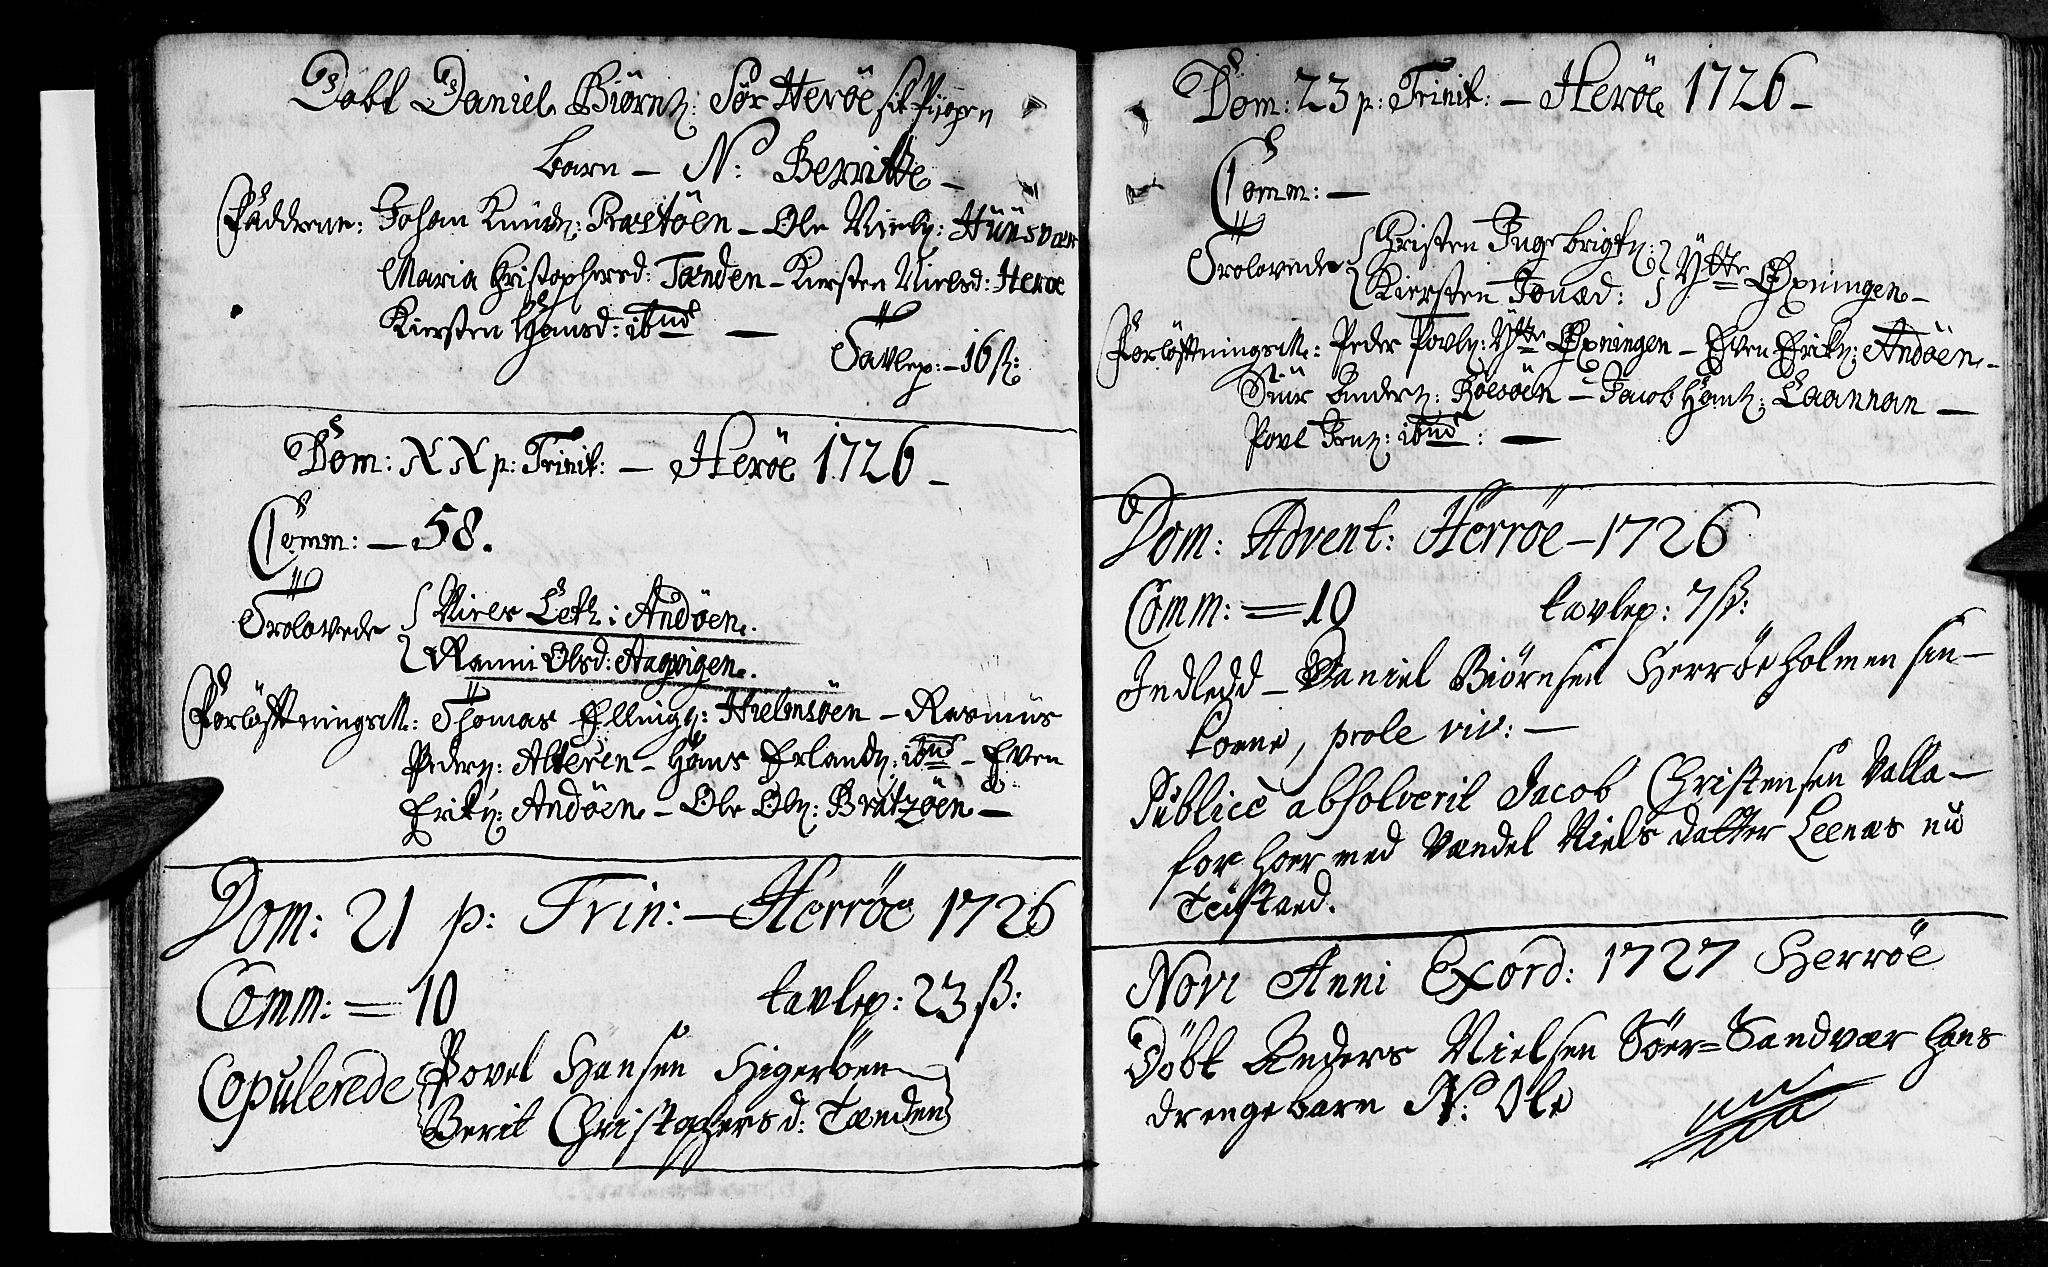 Døbt Daniel Biørnz: Sør Herøe sit Pige
barn – N: Beritte –
Fadderne: Johan Knudz: Præstöen – Ole Nielz: Hüüsvær
Maria Christophersd: Tænden – Kiersten Nielsd: Herøe
Kiersten Hansd: ibnd –
Tavlep: – 16 ß:
Dom: XX p: Trinit: – Herøe 1726 –
Comm: – 58.
Trolovede Niels Letz: Andöen.
Ranni Olsd: Aagvigen.
Forløftningsm: Thomas Ellingz: Hielmsöen – Rasmus
Pederz: Alteren – Hans Erlandz: ibnd – Even
Erikz: Andöen – Ole Olz: Bratzöen –
Dom: 21 p: Trin: – Herröe 1726
Comm: = 10 tavlep: 23 ß:
Copulerede Povel Hansen Higeröen
Berit Christophersd: Tænden
Dom: 23 p: Trinit: – Herøe 1726 –
Comm: –
Trolovede Christen Ingebrigtz: Ytte Øxningen –
Kiersten Jonæd:
Forløftningsm: Peder Povlz: Ytte Øxningen – Even Erikz: Andöen –
Siur Anderz: – Jacob Hanz: Laannan –
Povl Jenz: ibnd: –
Dom: Advent: Herröe – 1726
Comm: = 10 tavlep: 7 ß:
Indledd – Daniel Biørnsen Herröeholmen sin
kone, prole viv: –
Publicè absolverit Jacob Christensen Valla –
for hoer med Vandel Niels datter Leenæs nu
Teistaed.
Novi Anni Exord: 1727 Herröe
Döbt Anders Nielsen Söer=Sandvær hans
drengebarn N: Ole